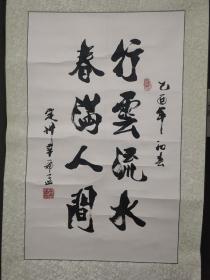 行雲流水
春滿人間
乙酉年初春